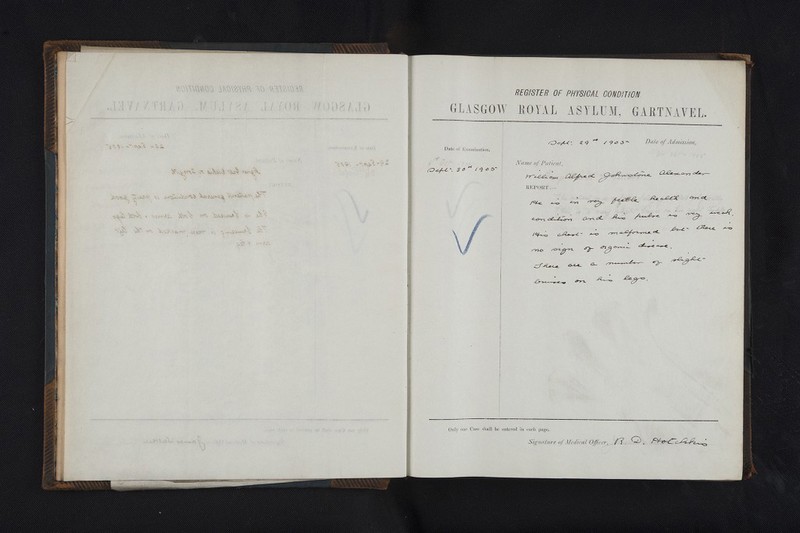 REGISTER OF PHYSICAL CONDITION
GLASGOW ROYAL ASYLUM, GARTNAVEL.
Sept. 29th 1905 Date of Admission,
Date of Examination,
Sept. 30th 1905
Name of Patient,
William Alfred Johnstone Alexander
REPORT:—
He is in very feeble health and
condition and his pulse is very weak.
His chest is malformed but there is
no sign of organic disease.
There are a number of slight
bruises on his legs.
Only one Case shall be entered in each page.
Signature of Medical Officer, R. D. Hotchkis